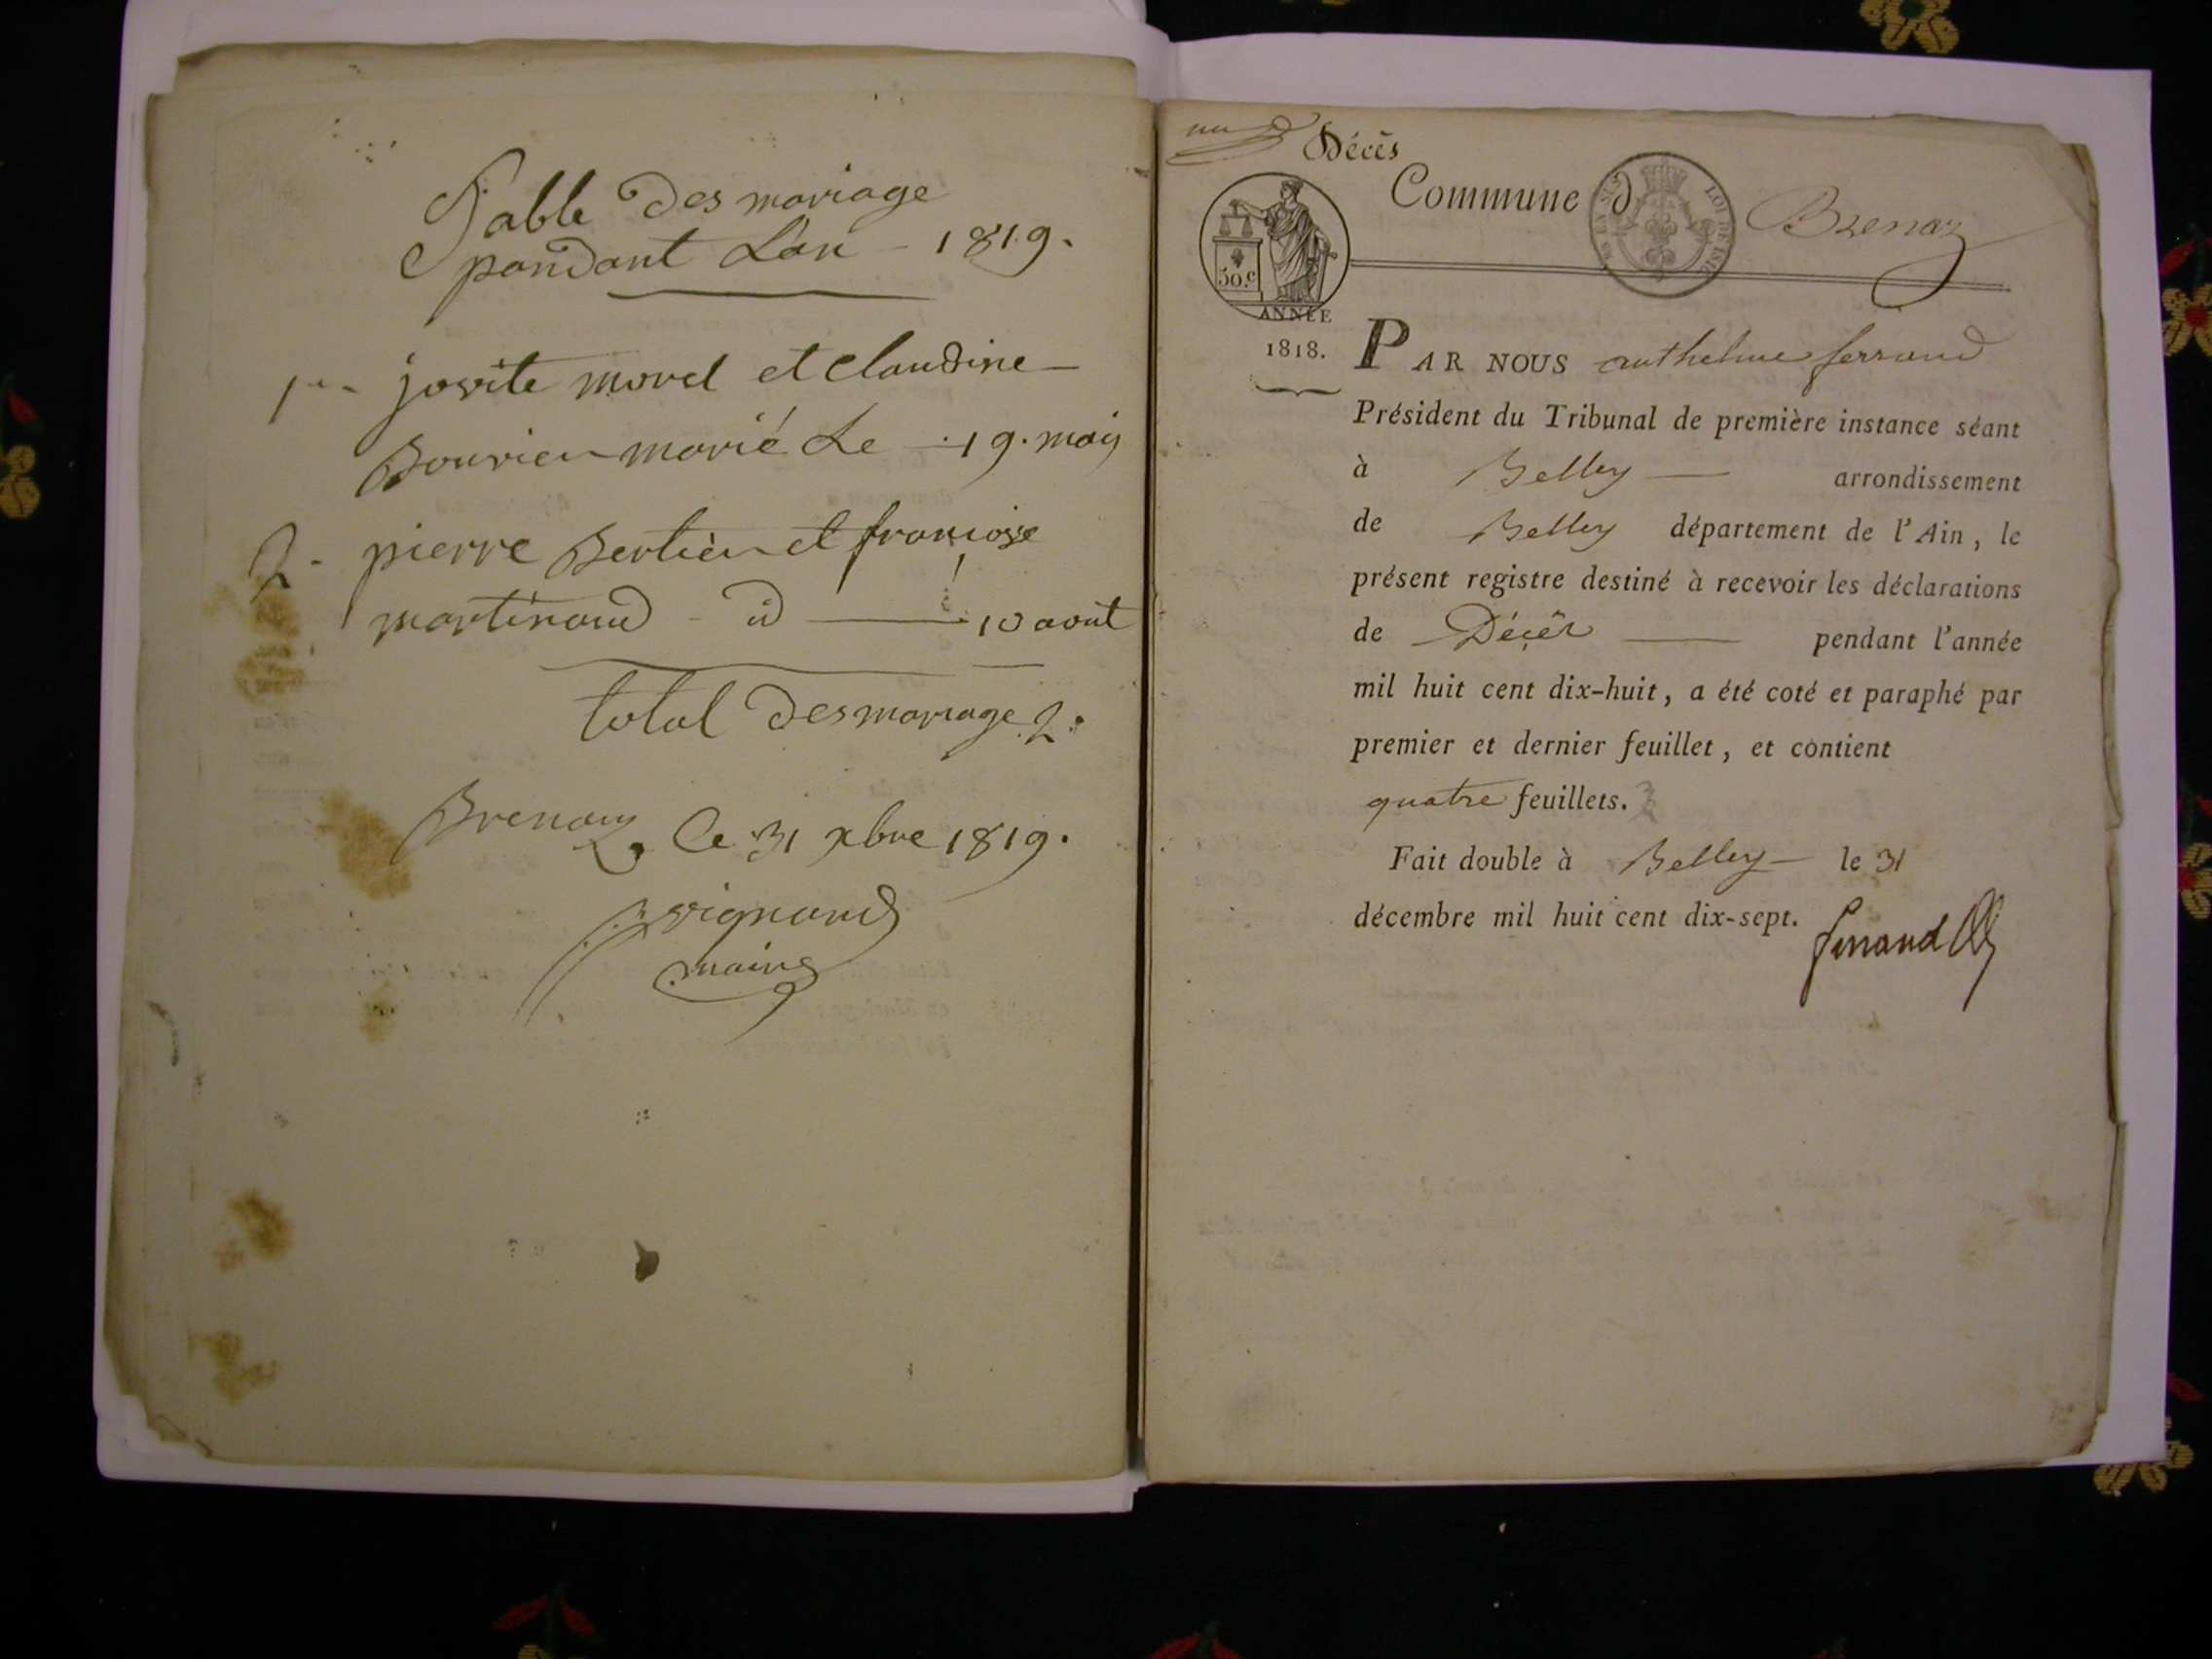 Table Des mariage
pandant Lan - 1819.
1er - jovite morel et Claudine -
Bouvier marié Le - 19. may
2 - pierre Bertier et francoise
martinand - id - 10 aout
total Des mariage 2.
Brenaz Le 31 xbre 1819.
vignand
maire
Décès
Commune d Brenaz
50.c
ANNÉE
1818.
PAR NOUS anthelme ferrand
Président du Tribunal de première instance séant
à Belley — arrondissement
de Belley département de l'Ain, le
présent registre destiné à recevoir les déclarations
de Décès — pendant l'année
mil huit cent dix-huit, a été coté et paraphé par
premier et dernier feuillet, et contient
quatre feuillets.
Fait double à Belley — le 31
décembre mil huit cent dix-sept.
ferrand